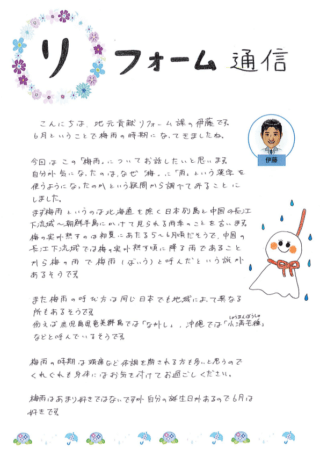 リフォーム通信
こんにちは、地元貢献リフォーム課の伊藤です。
6月ということで梅雨の時期になってきましたね。
伊藤
今回はこの「梅雨」についてお話したいと思います。
自分が気になったのは、なぜ「梅」に「雨」という漢字を
使うようになったのかという疑問から調べてみることに
しました。
まず梅雨というのは北海道を除く日本列島と中国の長江
下流域〜朝鮮半島にかけて見られる雨季のことを言います。
梅の実が熟すのは初夏にあたる5〜6月頃だそうで、中国の
長江下流域では梅の実が熟す頃に降る雨であること
から梅の雨で梅雨(ばいう)と呼んだという説が
あるそうです。
また梅雨の呼び方は同じ日本でも地域によって異なる
所もあるそうです。
例えば鹿児島県奄美群島では「ながし」、沖縄では「小満芒種」
などと呼んでいるそうです。
梅雨の時期は頭痛など体調を崩される方も多いと思うので
くれぐれも身体にはお気を付けてお過ごしください。
梅雨はあまり好きではないですが自分の誕生日があるので6月は
好きです。